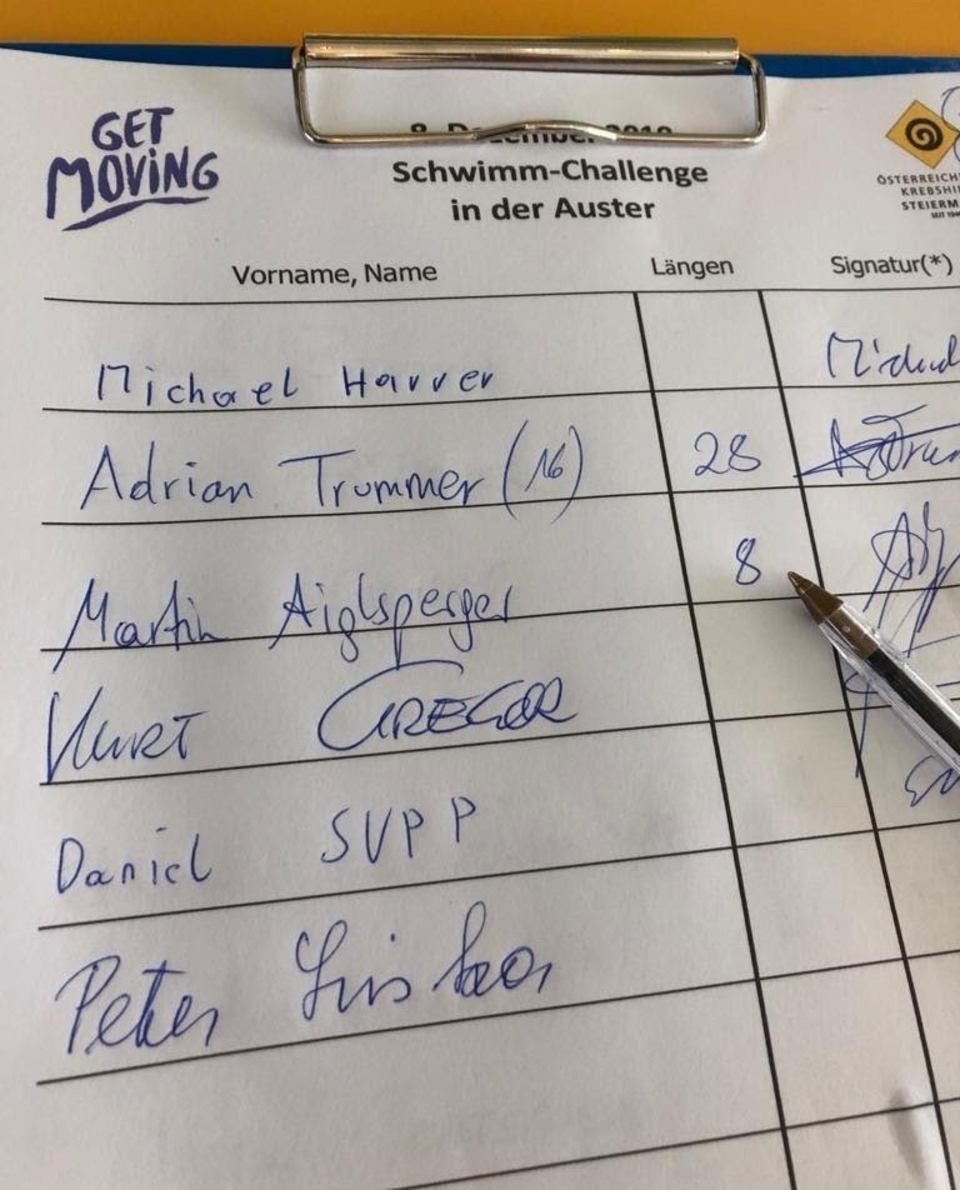 GET
MOVING
8. Dezember 2019
Schwimm-Challenge
in der Auster
ÖSTERREICH
KREBSHI
STEIERM
SEIT 194
Vorname, Name Längen Signatur(*)
Michael Harrer Michael
Adrian Trummer (16) 28
Martin Aiglsperger 8
KURT GREGOR
Daniel SUPP
Peter